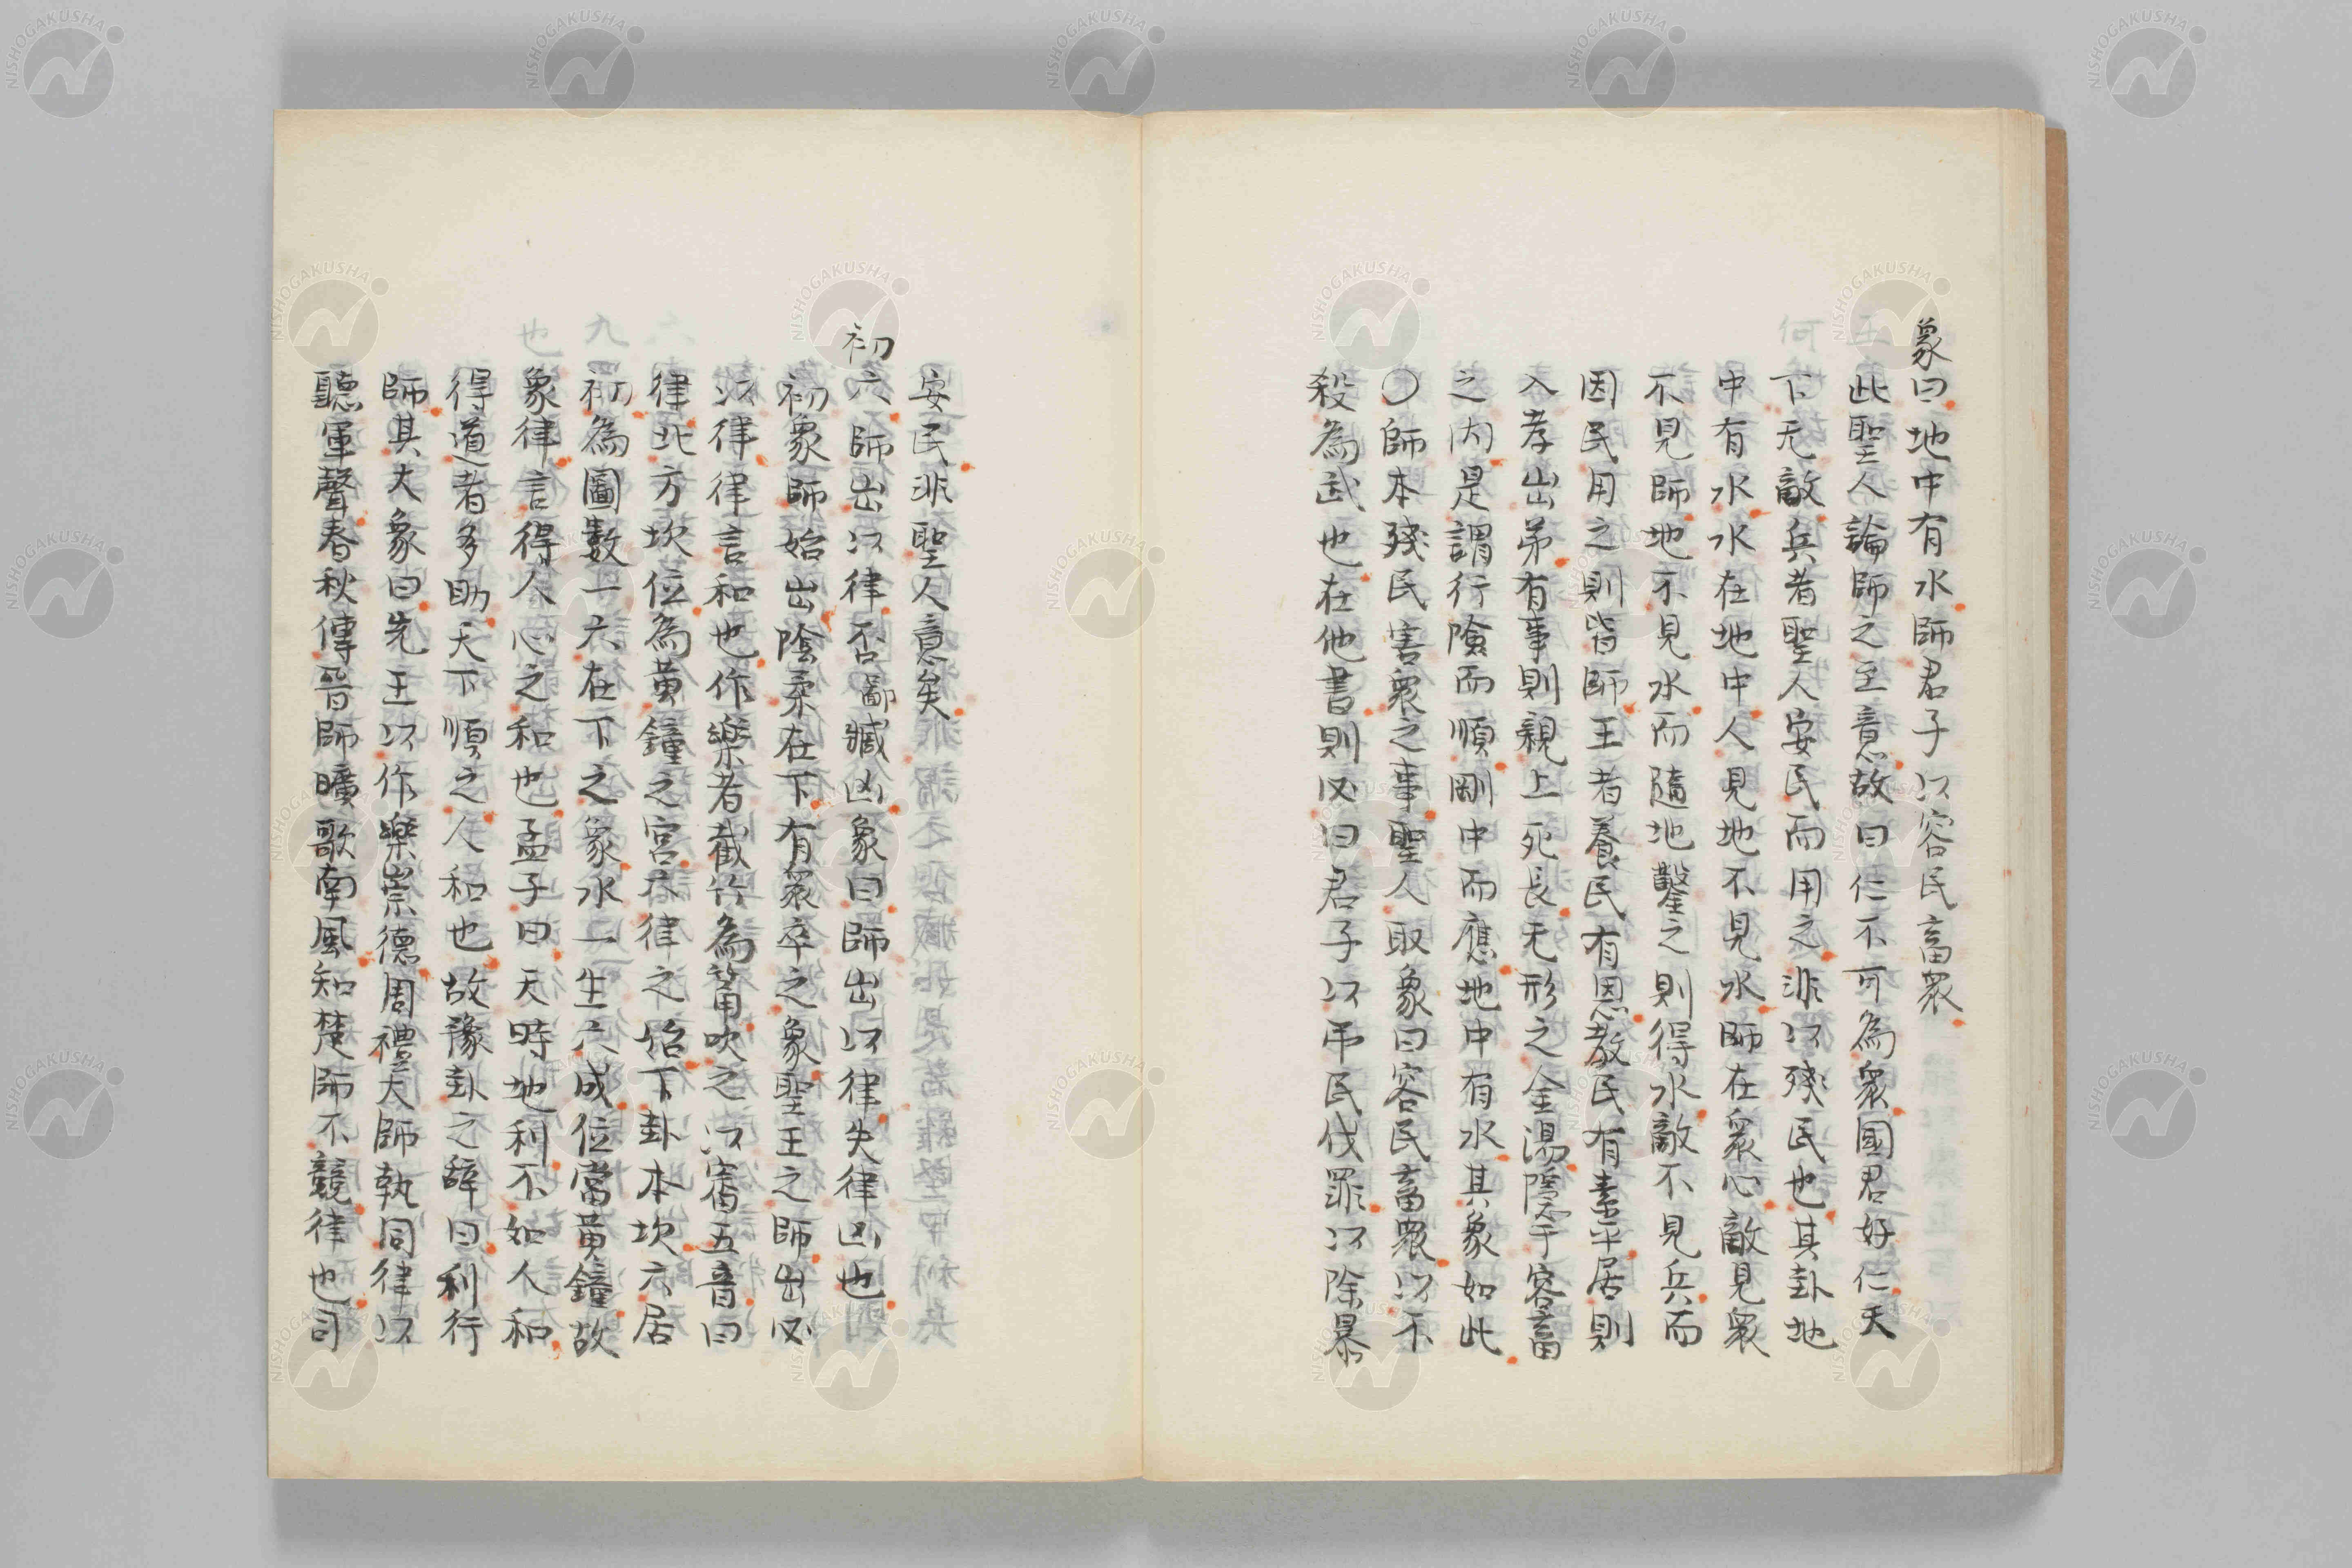 象曰地中有水師君子以容民畜衆
此聖人論師之至意故曰仁不可為衆國君好仁天
下无敵兵者聖人安民而用之非以殘民也其卦地
中有水水在地中人見地不見水師在衆心敵見衆
不見師地不見水而隨地鑿之則得水敵不見兵而
因民用之則皆師王者養民有恩教民有素平居則
入孝出弟有事則親上死長无形之金湯隱于容畜
之内是謂行險而順剛中而應地中有水其象如此
〇師本殘民害衆之事聖人取象曰容民畜衆以不
殺為武也在他書則必曰君子以弔民伐罪以除暴
安民非聖人意矣
初六師出以律否鄙臧凶象曰師出以律失律凶也
初象師始出陰柔在下有衆卒之象聖王之師出必
以律律言和也作樂者截竹為筩吹之以審五音曰
律北方坎位為黄鐘之宮六律之始下卦本坎六居
初為圖數一六在下之象水一生六成位當黄鐘故
象律言得人心之和也孟子曰天時地利不如人和
得道者多助天下順之人和也故豫卦之辭曰利行
師其大象曰先王以作樂崇德周禮大師執同律以
聽軍聲春秋傳晉師曠歌南風知楚師不競律也司
NISHOGAKUSHA